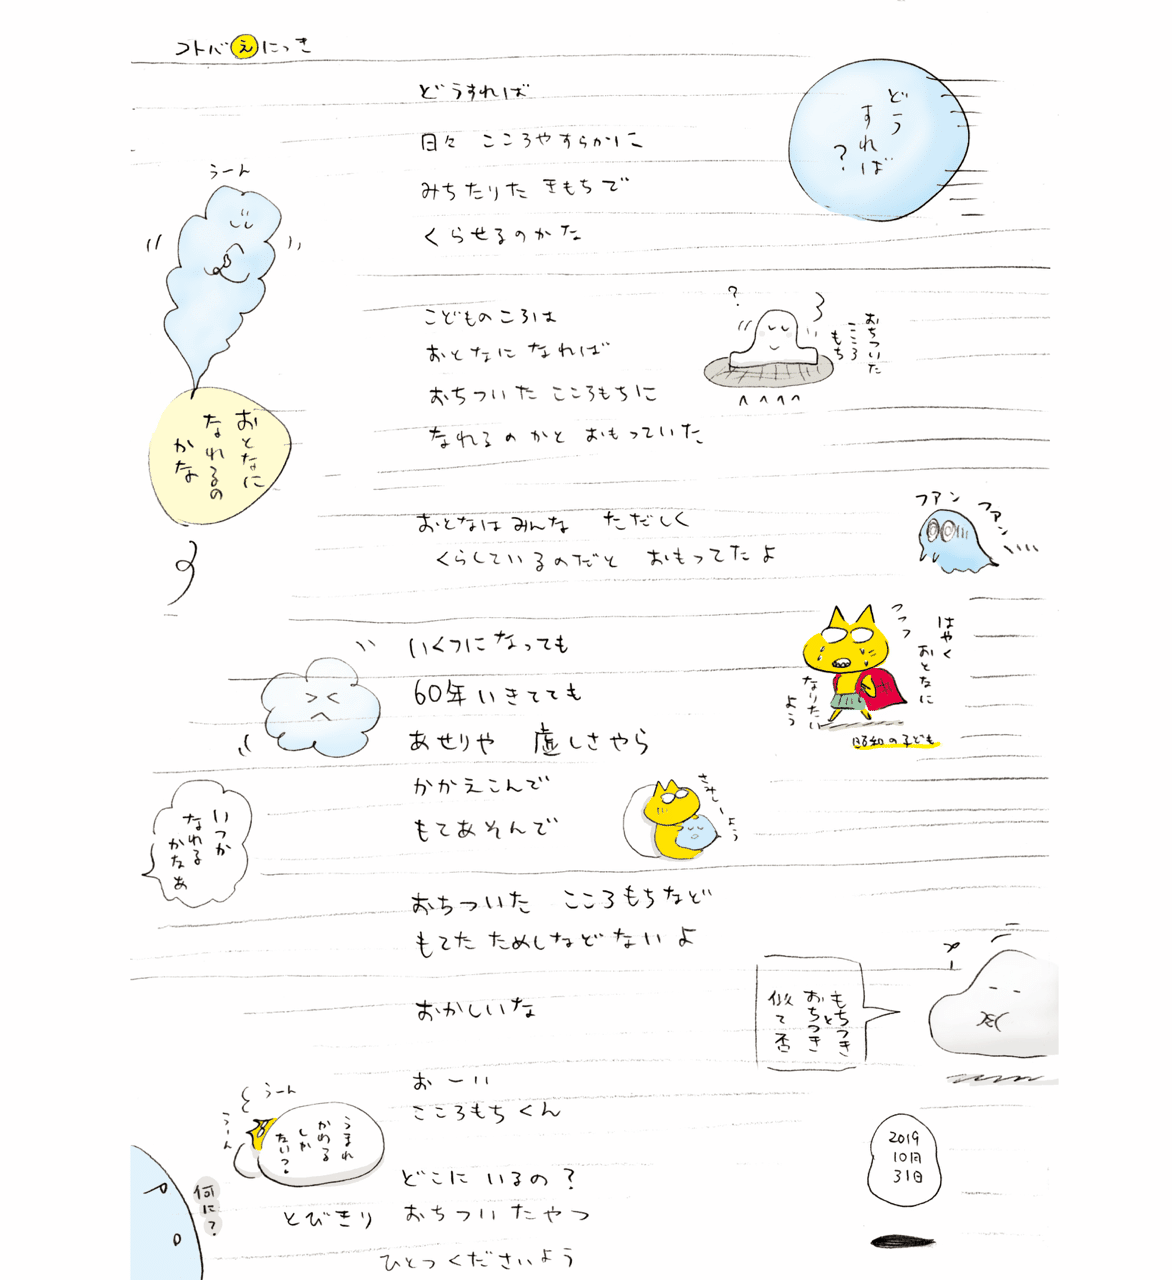 コトバえにっき
どうすれば
日々 こころやすらかに
みちたりた きもちで
くらせるのかな
どう
すれば
?
うーん
おとなに
なれるの
かな
こどものころは
おとなに なれば
おちついた こころもちに
なれるのかと おもっていた
?
おちついた
こころ
もち
おとなは みんな ただしく
くらしているのだと おもってたよ
フアン
フアン
いくつに なっても
60年 いきてても
あせりや 虚しさやら
かかえこんで
もてあそんで
はやく
おとなに
なりたい
よう
フフフ
昭和の子ども
さみしーよう
いつか
なれる
かなぁ
おちついた こころもちなど
もてた ためしなどないよ
おかしいな
もちつきと
おちつき
似て否
おーい
こころもちくん
うーん
うーん
うまれ
かわる
しか
ない?
どこに いるの?
とびきり おちついたやつ
ひとつくださいよう
何に?
2019
10月
31日